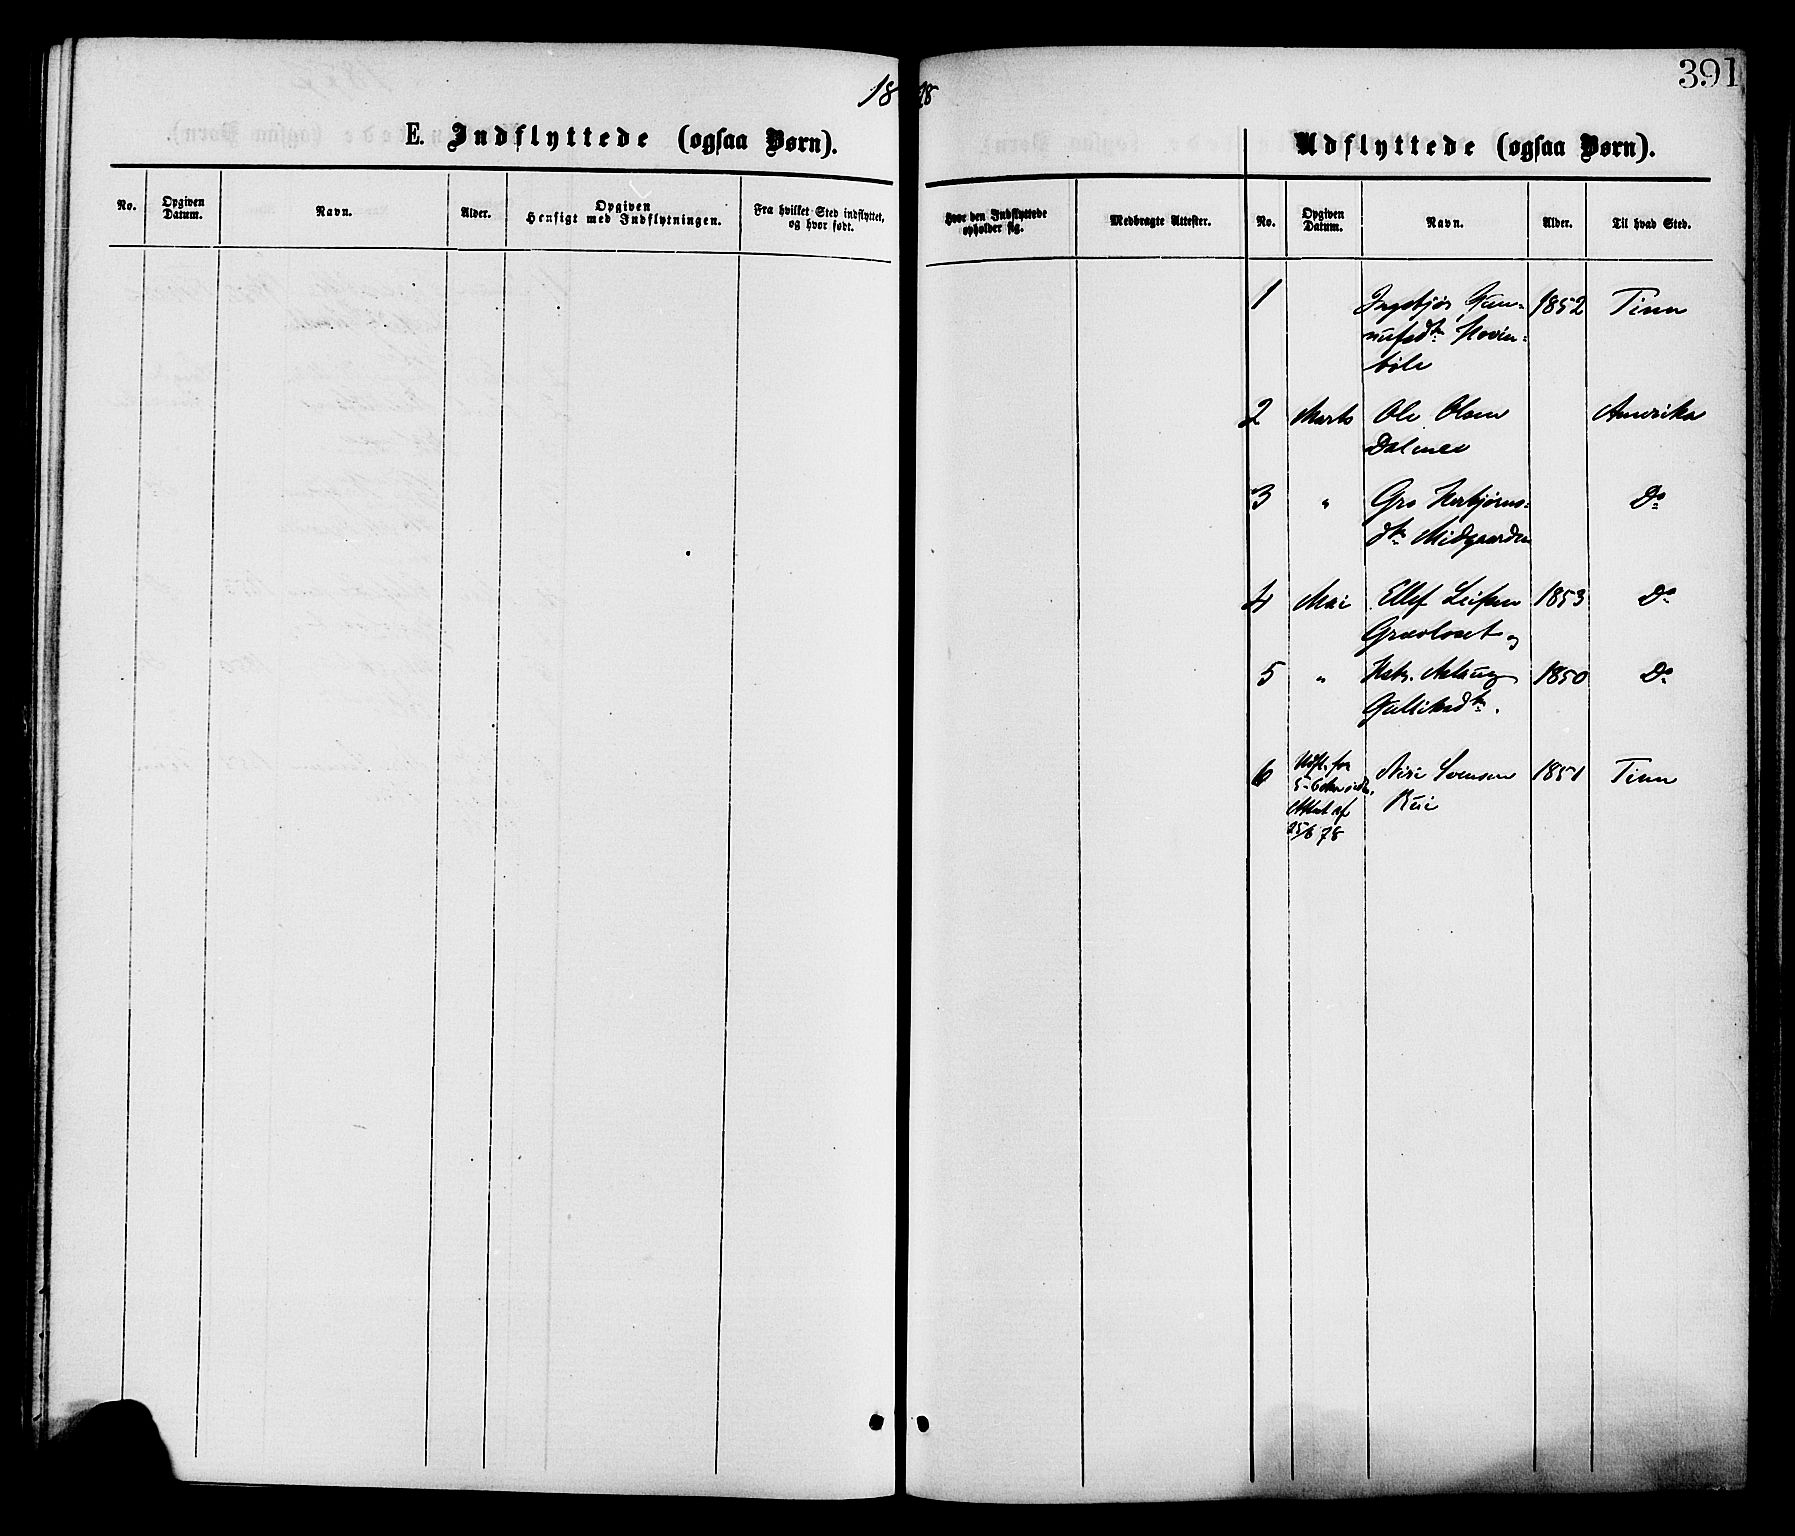 391
18 78
E. Indflyttede (ogsaa Børn).
Udflyttede (ogsaa Børn).
No.
Opgiven Datum.
Navn.
Alder.
Opgiven Hensigt med Indflytningen.
Fra hvilket Sted indflyttet, og hvor født.
Hvor den Indflyttede opholder sig.
Medbragte Attester.
No.
Opgiven Datum.
Navn.
Alder.
Til hvad Sted.
1 Ingebjør Gun- 1852 Tinn
nufsdtr Hovin-
böle
2 Marts Ole Olsen Amerika
Dalnes
3 " Gro Herbjørns- Do
dtr Midgaarden
4 Mai Ellef Leifsen 1853 Do
Græsloset og
5 " Hstr. Aslaug 1850 Do
Gulliksdtr.
6 Udfl. for Svensen 1851 Tinn
5-6
Attest af Rui
25/6 78